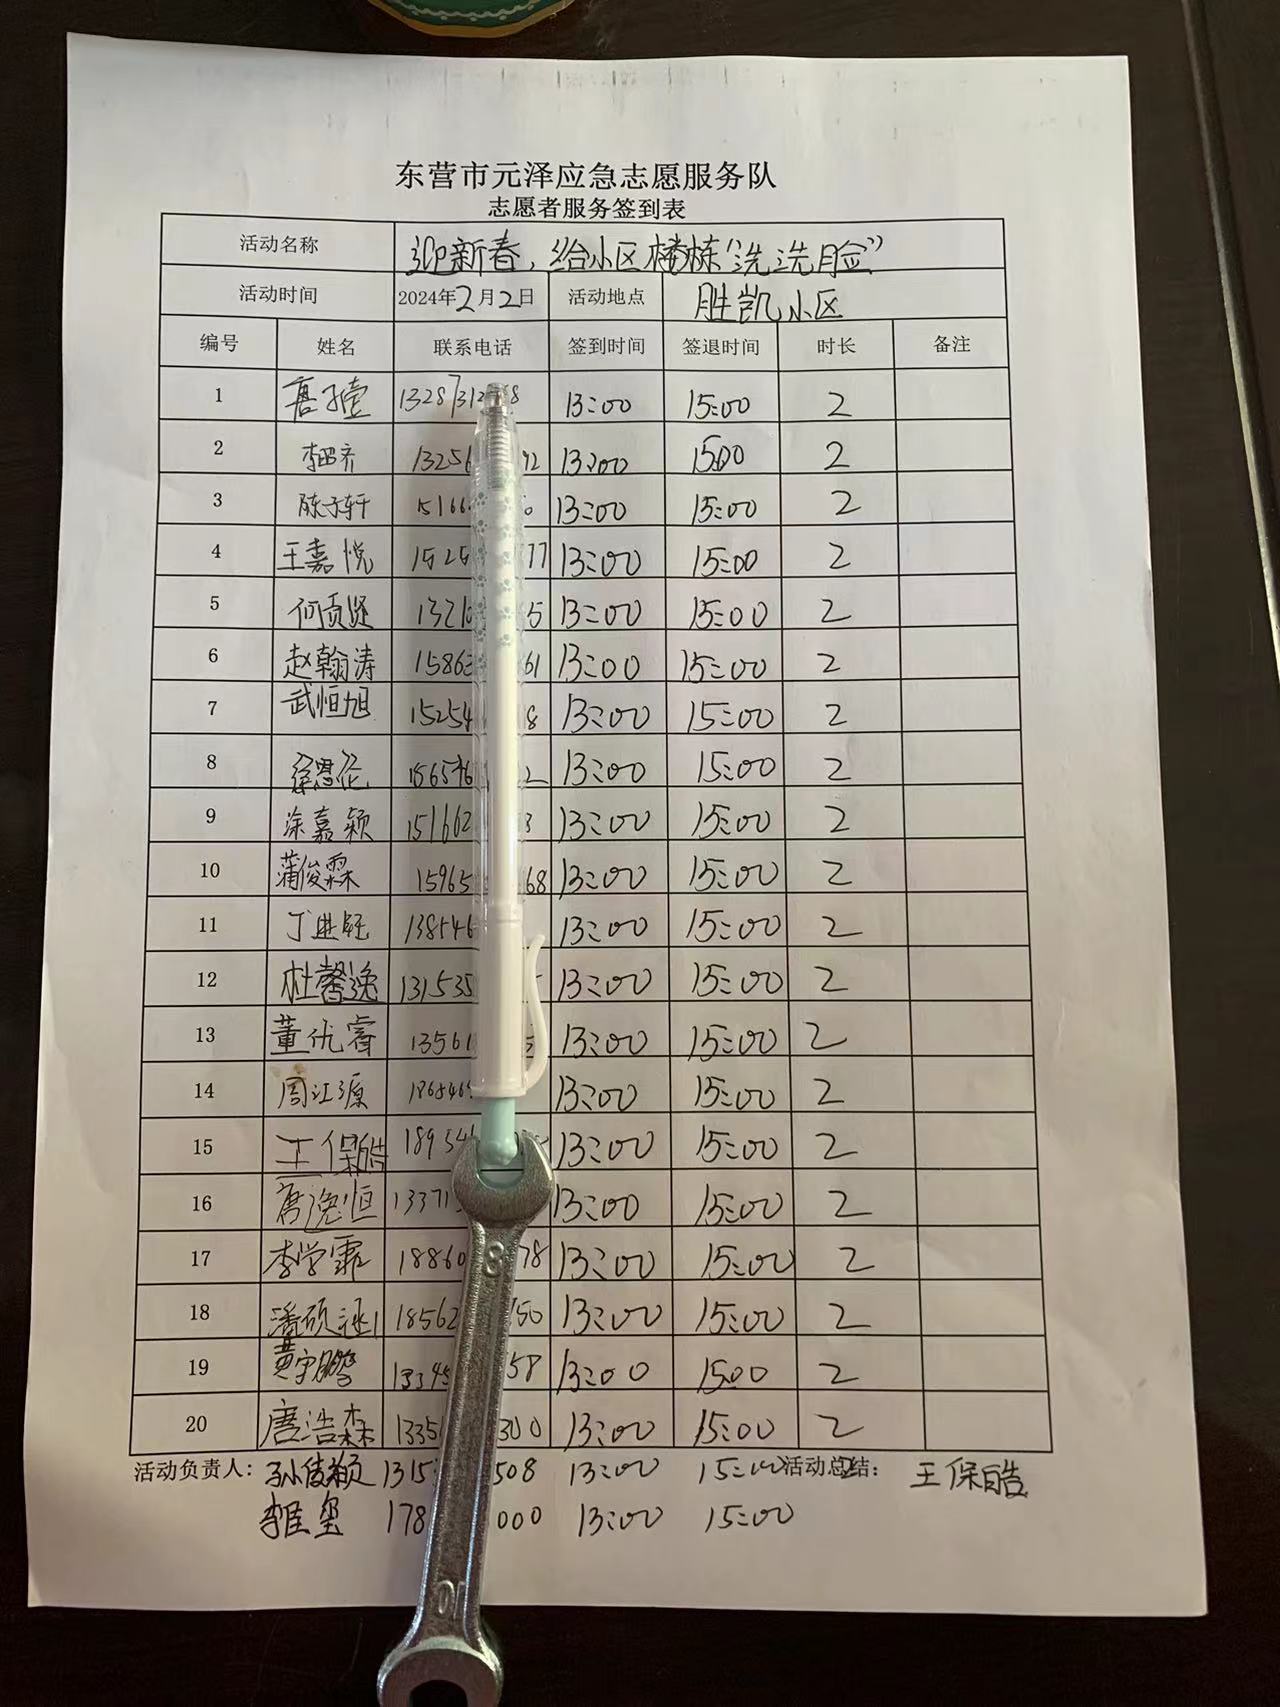 东营市元泽应急志愿服务队
志愿者服务签到表
活动名称 迎新春，给小区楼栋“洗洗脸”
活动时间 2024年2月2日 活动地点 胜凯小区
编号 姓名 联系电话 签到时间 签退时间 时长 备注
1 13:00 15:00 2
2 13256 92 13:00 15:00 2
3 陈子轩 1516 13:00 15:00 2
4 王嘉悦 1525 77 13:00 15:00 2
5 何贡贤 1321 5 13:00 15:00 2
6 赵翰涛 15863 61 13:00 15:00 2
7 武恒旭 15254 8 13:00 15:00 2
8 徐恩伦 156546 2 13:00 15:00 2
9 涂嘉颖 151662 3 13:00 15:00 2
10 蒲俊霖 15965 68 13:00 15:00 2
11 138546 13:00 15:00 2
12 杜馨逸 131535 13:00 15:00 2
13 董优睿 13561 5 13:00 15:00 2
14 周江源 186546 13:00 15:00 2
15 王保皓 189546 13:00 15:00 2
16 唐逸恒 13371 13:00 15:00 2
17 李学霏 18860 78 13:00 15:00 2
18 潘硕 18562 150 13:00 15:00 2
19 黄宇鹏 13345 58 13:00 1500 2
20 唐浩森 1335 300 13:00 15:00 2
活动负责人： 孙俊颖 1315 508 13:00 15:00 活动总结： 王保皓
玺 178 000 13:00 15:00
8
10